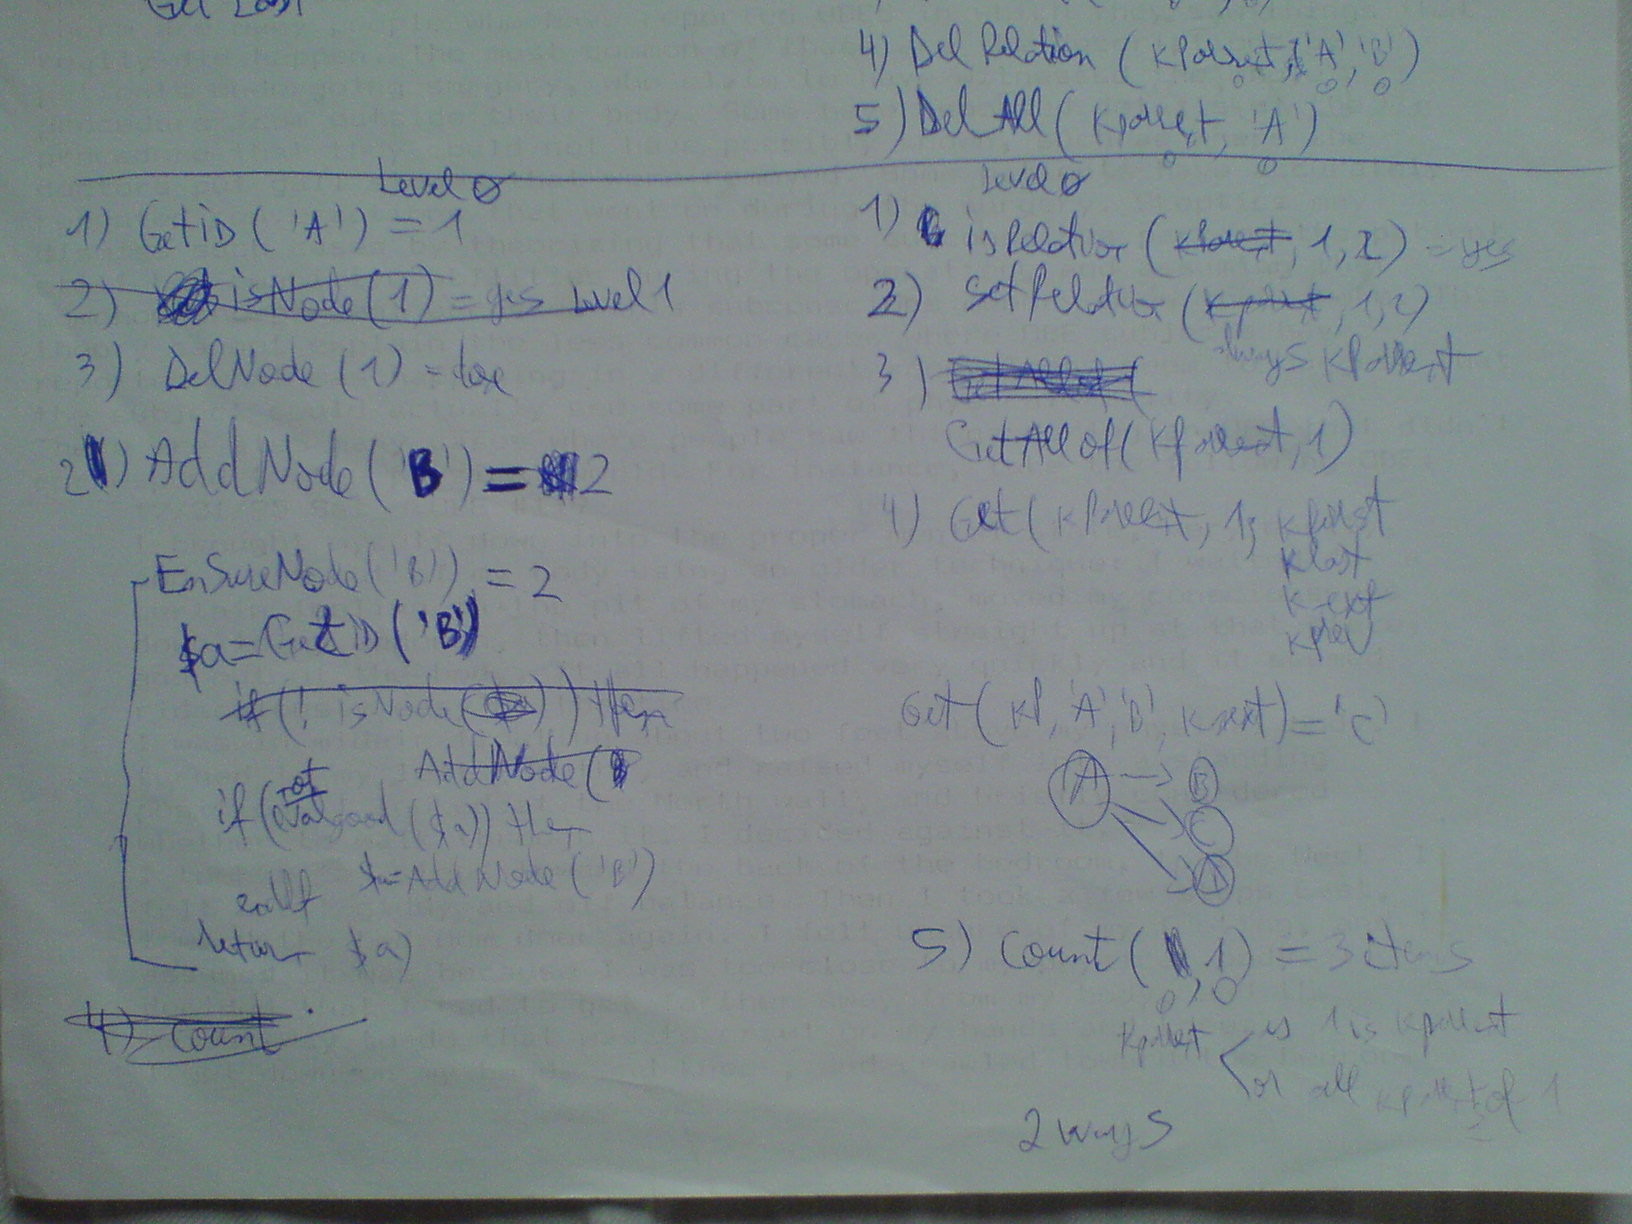 Get Last
4) DelRelation (kParent, 'A', 'B')
5) DelAll (kparent, 'A')
Level 0
1) GetiD ('A') = 1
2) isNode (1) = yes Level 1
3) DelNode (1) =
2) AddNode ('B') = 2
EnsureNode ('B') = 2
$a = GetiD ('B')
if (! isNode ( )) then
AddNode (
if (not evalgood ($a)) then
$a = AddNode ('B')
endif
return $a)
4) Count
Level 0
1) isRelation (kParent, 1, 2) = yes
2) SetRelation (kparent, 1, 2)
always kParent
3) GetAllof (
GetAllof (kparent, 1)
4) Get (kParent, 1, kfirst
klast
knext
kprev
Get (kP, 'A', 'B', knext) = 'C'
A B
C
D
5) Count ( , 1) = 3 items
kparent
as 1 is kparent
or all kparent of 1
2 ways